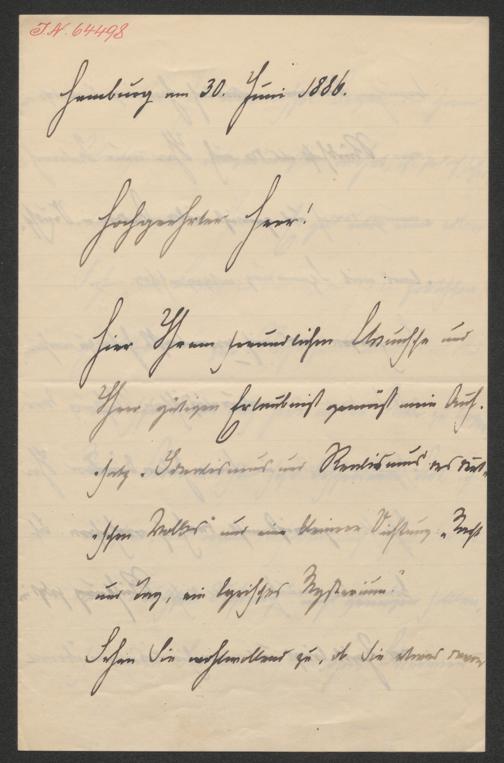 I.N. 64498
Hamburg am 30. Juni 1886.
Hochgeehrter Herr!
Hier Ihrem freundlichen Wunsche und
Ihrer gütigen Erlaubniß gemäß mein Auf-
satz „Idealismus und Realismus des deut-
schen Volkes" und eine kleinere Dichtung „Nacht
und Tag, ein lyrisches Mysterium."
Sehen Sie wohlwollend zu, ob Sie etwas davon